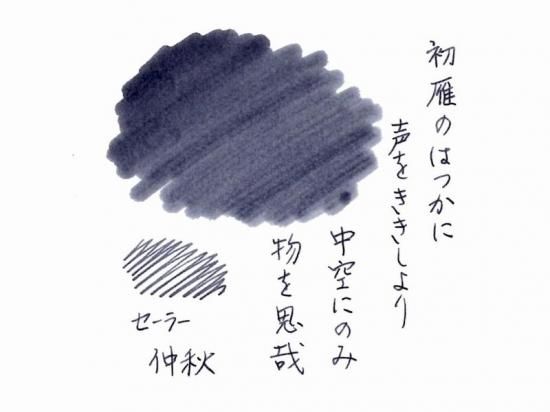 初雁のはつかに
声をききしより
中空にのみ
物を思哉
セーラー
仲秋